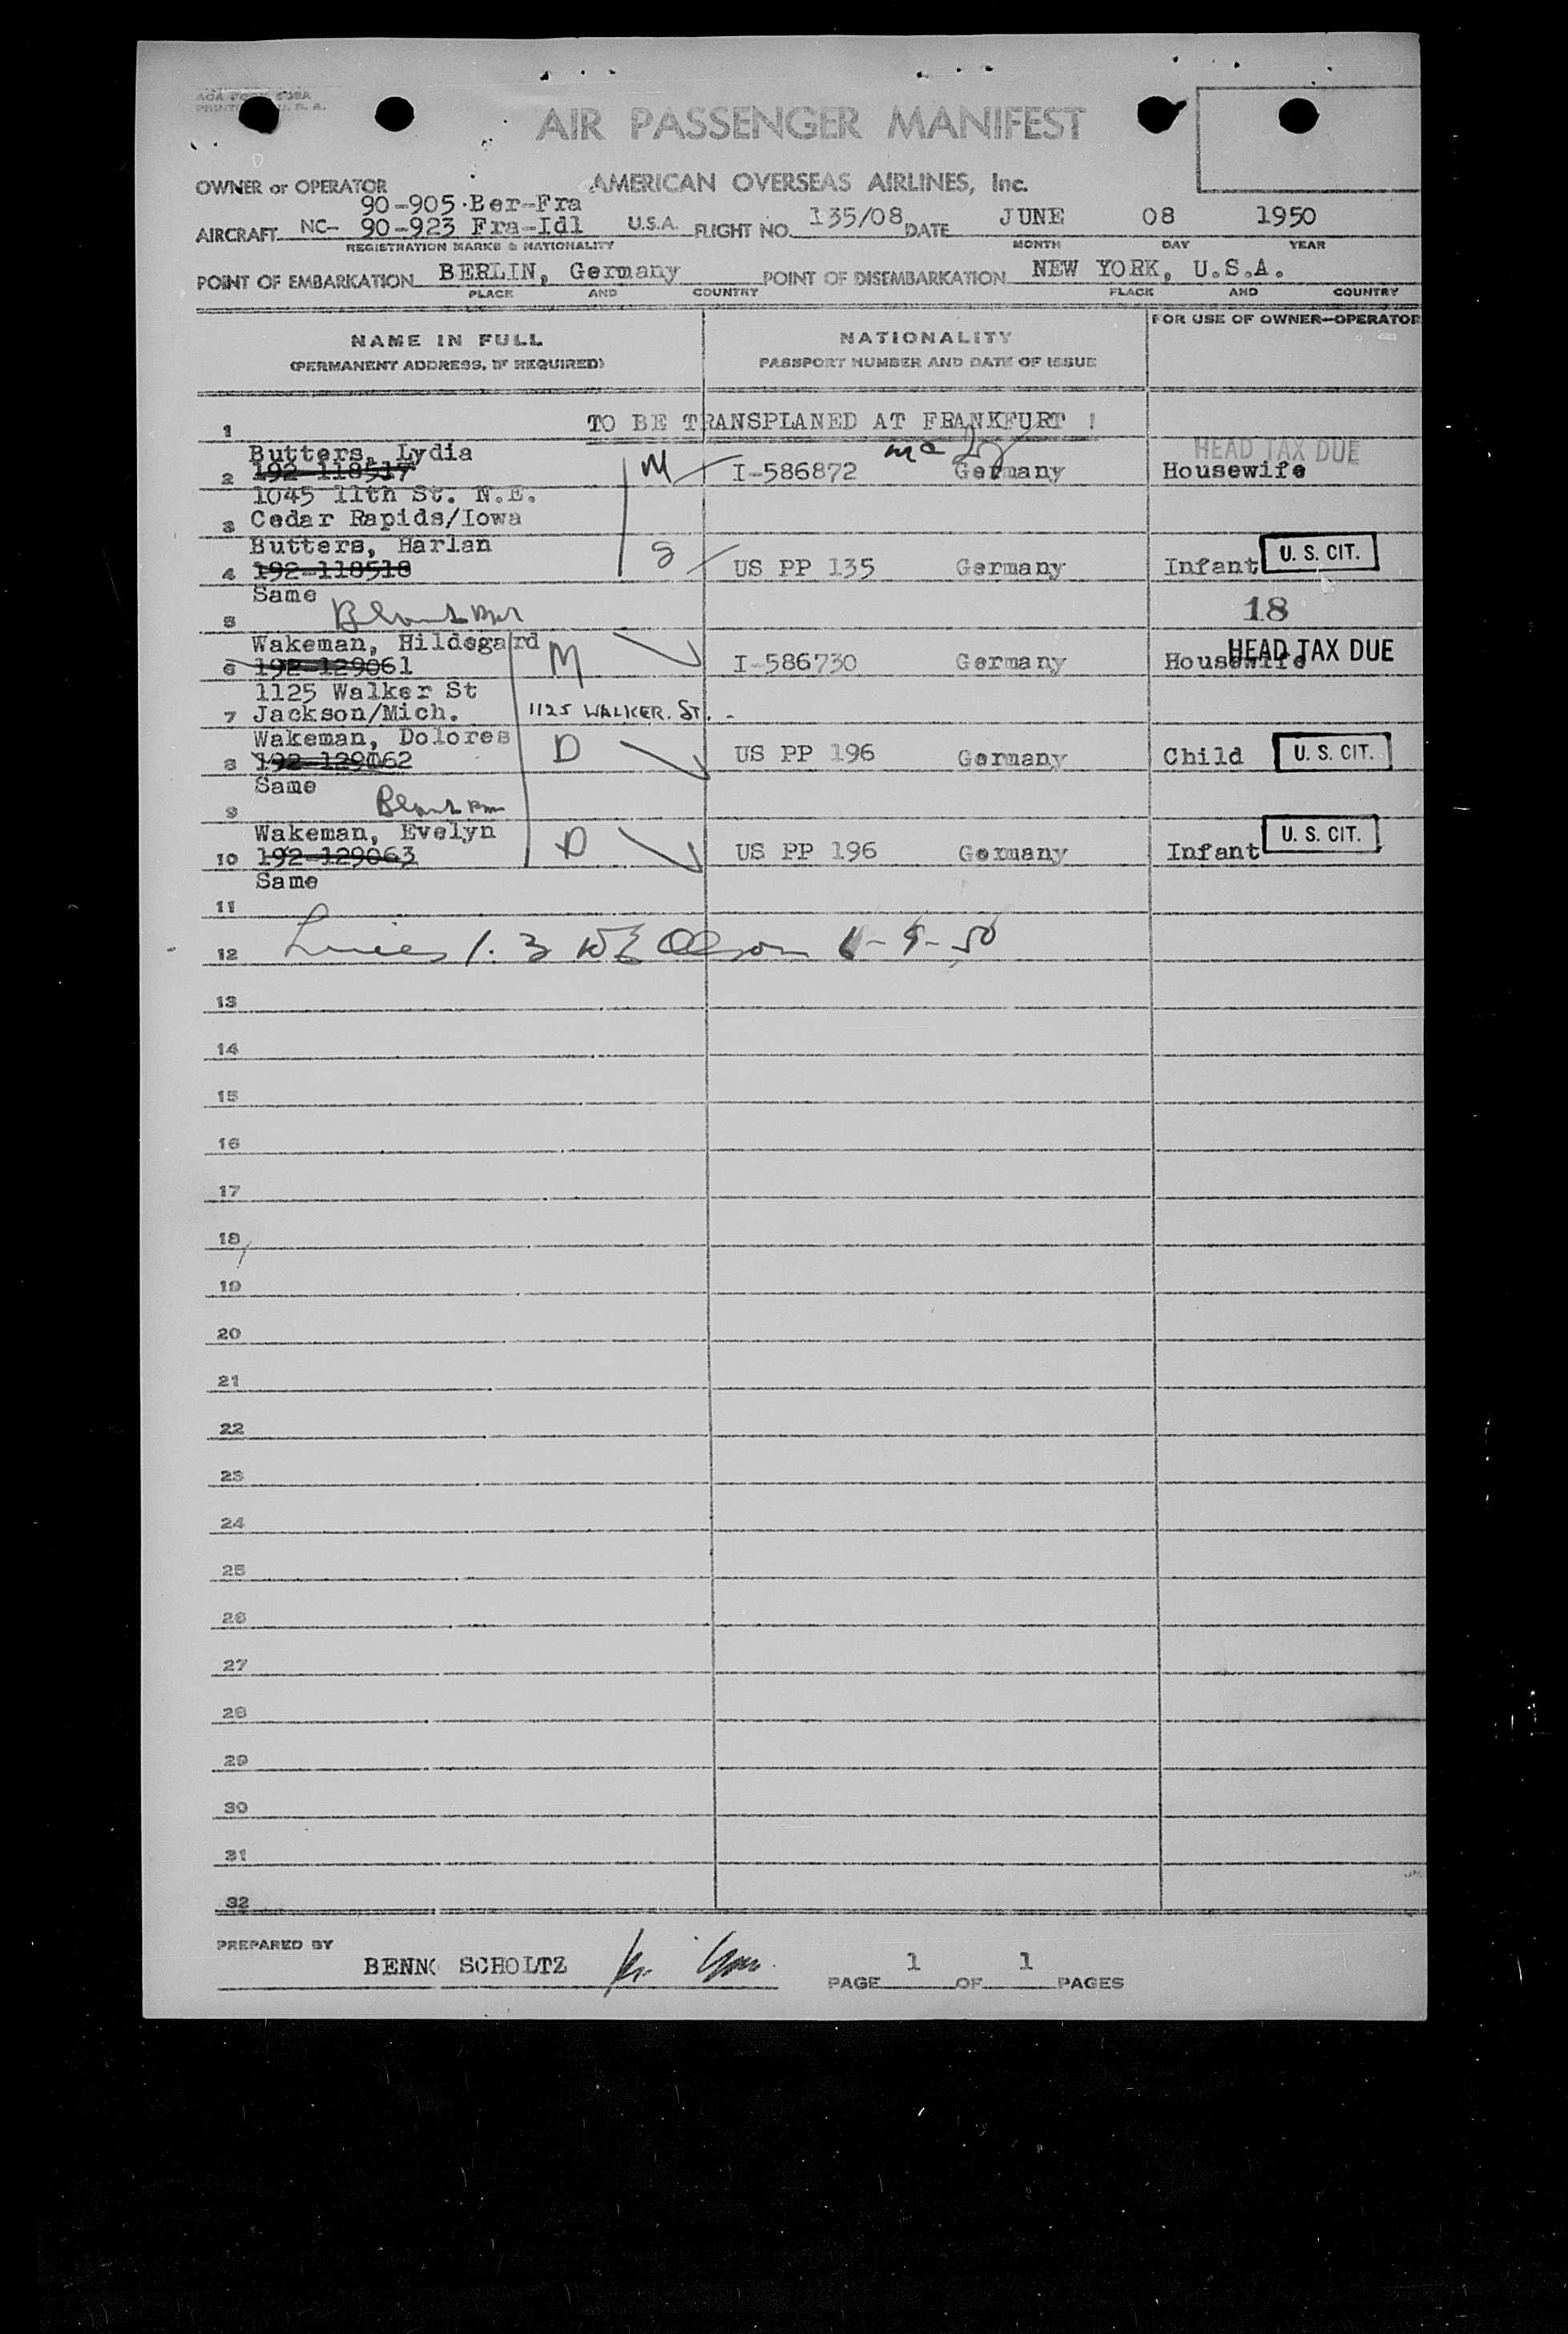 AIR PASSENGER MANIFEST
OWNER or OPERATOR AMERICAN OVERSEAS AIRLINES, Inc.
90-905 Ber-Fra
AIRCRAFT NC- 90-923 Fra-Idl U.S.A. FLIGHT NO. 135/08 DATE JUNE 08 1950
REGISTRATION MARKS & NATIONALITY MONTH DAY YEAR
POINT OF EMBARKATION BERLIN, Germany POINT OF DISEMBARKATION NEW YORK, U.S.A.
PLACE AND COUNTRY PLACE AND COUNTRY
NAME IN FULL NATIONALITY FOR USE OF OWNER-OPERATOR
(PERMANENT ADDRESS, IF REQUIRED) PASSPORT NUMBER AND DATE OF ISSUE
1 TO BE TRANSPLANED AT FRANKFURT !
Butters, Lydia HEAD TAX DUE
2 192-118517 M I-586872 Germany Housewife
1045 11th St. N.E.
3 Cedar Rapids/Iowa
Butters, Harlan
4 192-118518 S US PP 135 Germany Infant U. S. CIT.
Same
5 18
Wakeman, Hildegard HEAD TAX DUE
6 192-129061 M I-586730 Germany Housewife
1125 Walker St
7 Jackson/Mich. 1125 WALKER. ST. -
Wakeman, Dolores
8 192-129062 D US PP 196 Germany Child U. S. CIT.
Same
9
Wakeman, Evelyn
10 192-129063 D US PP 196 Germany Infant U. S. CIT.
Same
11
12 Lines 1. 3 W E Olson 6-9-50
13
14
15
16
17
18
19
20
21
22
23
24
25
26
27
28
29
30
31
32
PREPARED BY
BENNO SCHOLTZ PAGE 1 OF 1 PAGES